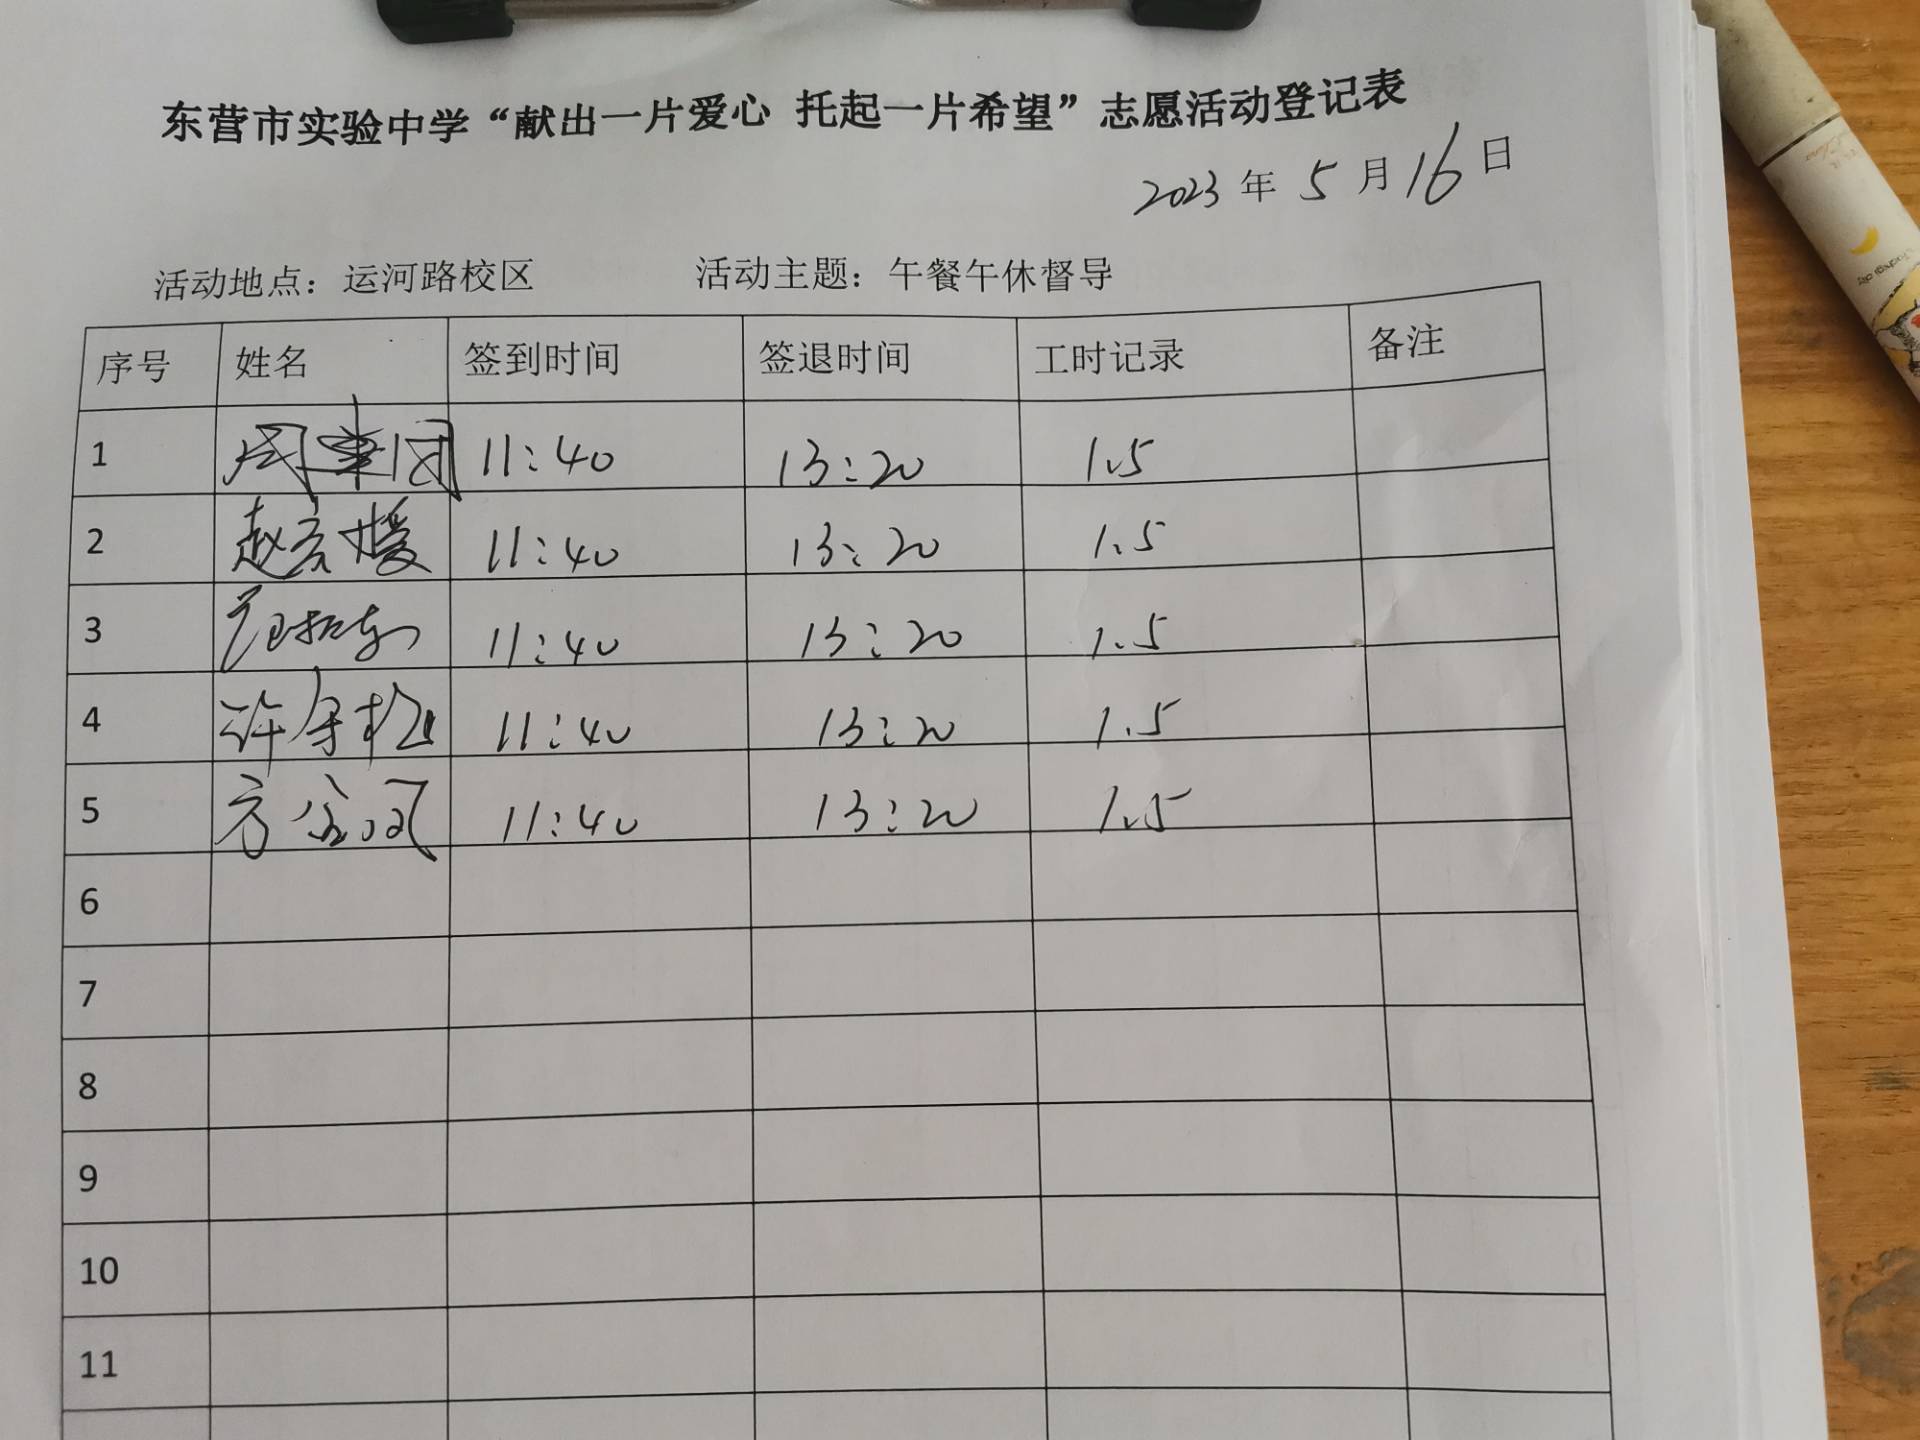 东营市实验中学“献出一片爱心 托起一片希望”志愿活动登记表
2023年5月16日
活动地点：运河路校区 活动主题：午餐午休督导
序号 姓名 签到时间 签退时间 工时记录 备注
1 11:40 13:20 1.5
2 11:40 13:20 1.5
3 11:40 13:20 1.5
4 11:40 13:20 1.5
5 11:40 13:20 1.5
6
7
8
9
10
11